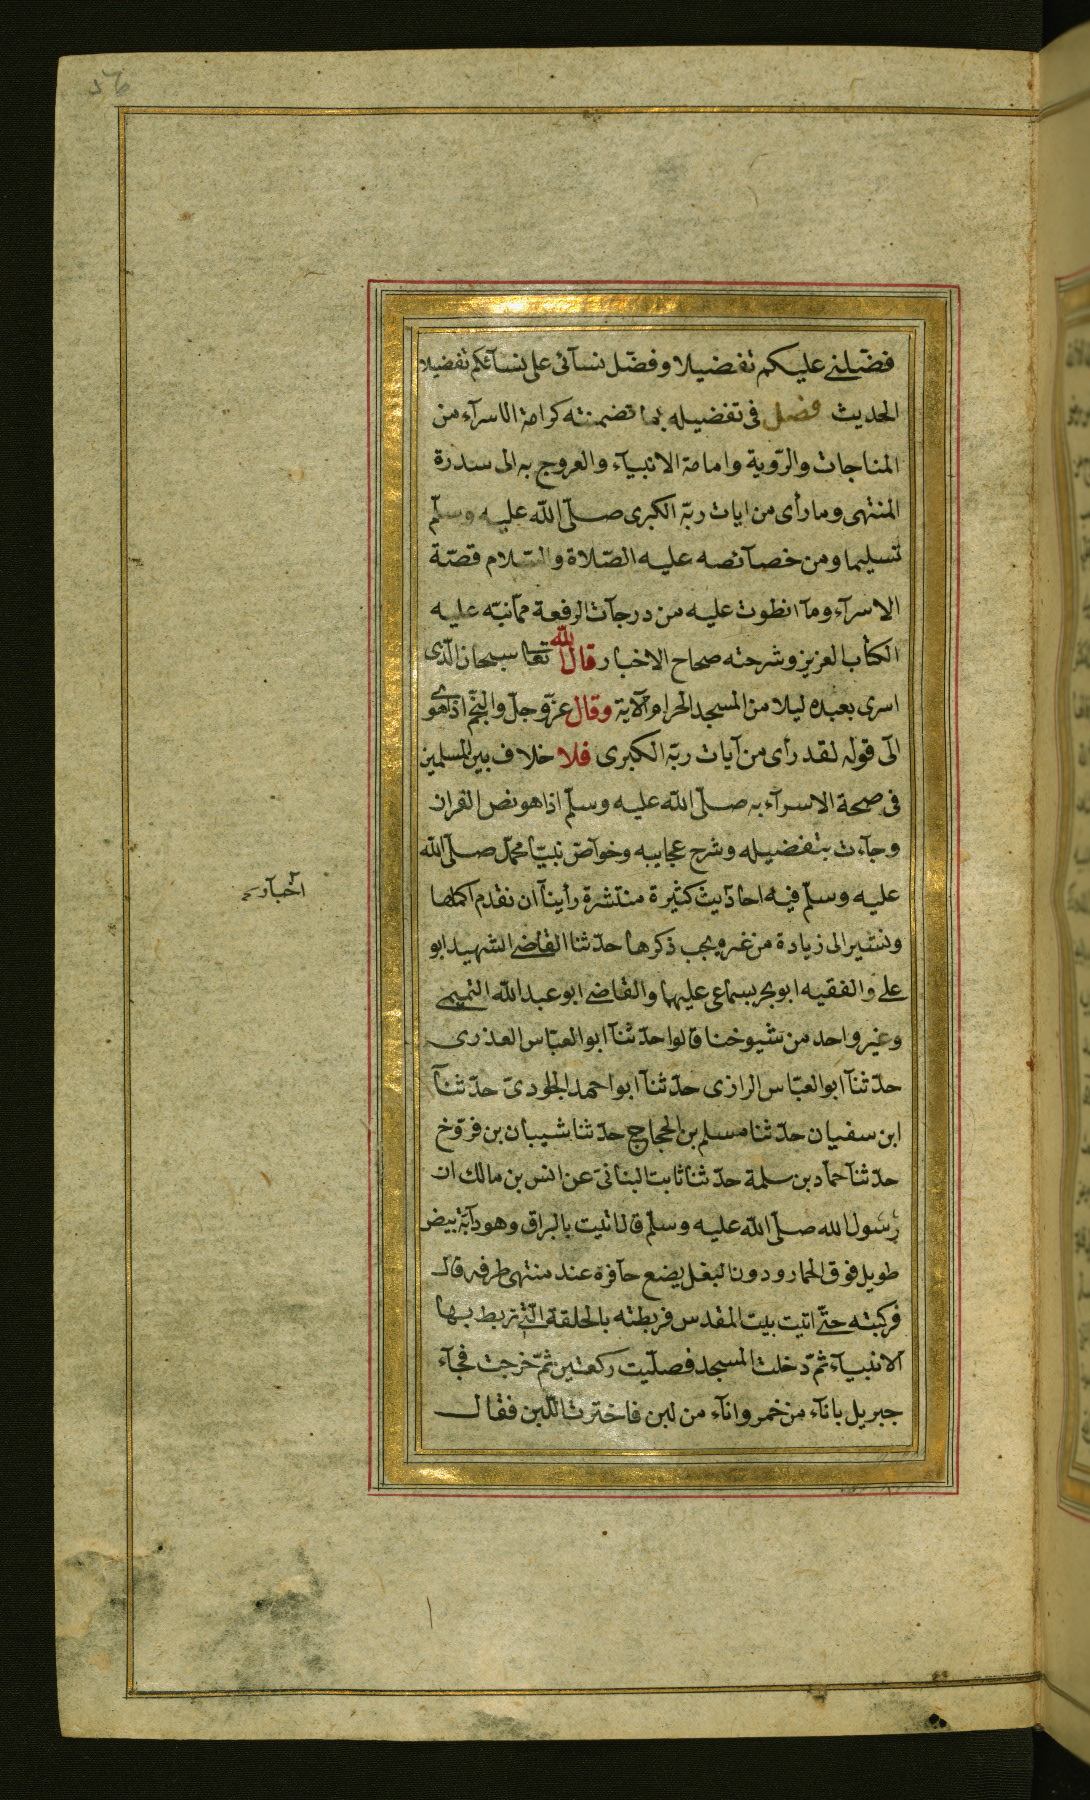 فضّلنى عليكم تفضيلا وفضّل نسآئى على نسآئكم تفضيلا
الحديث فصل فى تفضيله بما تضمنته كرامة الاسرآء من
المناجات والرّوية وامامة الانبيآء والعروج به الى سدرة
المنتهى وما رأى من ايات ربّه الكبرى صلّى اللّه عليه وسلّم
تسليما ومن خصآئصه عليه الصّلاة والسّلام قصّة
الاسرآء ومآ انطوت عليه من درجآت الرفعة ممّا نبّه عليه
الكتاب العزيز وشرحته صحاح الاخبار قال اللّه تعا سبحان الّذى
اسرى بعبده ليلا من المسجد الحرام الآية وقال عزّ وجلّ والنّجم اذا هوى
الى قوله لقد رأى من آيات ربّه الكبرى فلا خلاف بين المسلمين
فى صحة الاسرآء به صلّى اللّه عليه وسلّم اذ هو نص القران
وجآءت بتفضيله وشرح عجايبه وخواصّ نبيّنا محمّد صلّى اللّه
عليه وسلّم فيه احاديث كثيرة منتشرة رأينآ ان نقدم اكملها
ونشير الى زيادة من غيره يجب ذكرها حدّثنا القاضى الشهيد ابو
على والفقيه ابو بحر بسماعى عليهما والقاضى ابو عبد اللّه التميمى
وغير واحد من شيوخنا قالوا حدّثنآ ابو العبّاس العذرى
حدّثنآ ابو العبّاس الرازى حدّثنآ ابو احمد الجلودىّ حدّثنآ
ابن سفيان حدّثنا مسلم بن الحجاج حدّثنا شيبان بن فرّوخ
حدّثنآ حمّاد بن سلمة حدّثنا ثابت البنانىّ عن انس بن مالك ان
رسول الله صلّى اللّه عليه وسلّم قال اتيت بالبراق وهو دآبّة بيض
طويل فوق الحمار ودون البغل يضع حآفره عند منتهى طرفه قال
فركبته حتّى اتيت بيت المقدس فربطته بالحلقة الّتى تربط بها
الانبيآء ثمّ دخلت المسجد فصلّيت ركعتين ثمّ خرجت فجآء
جبريل بانآء من خمر وانآء من لبن فاخترت اللّبن فقال